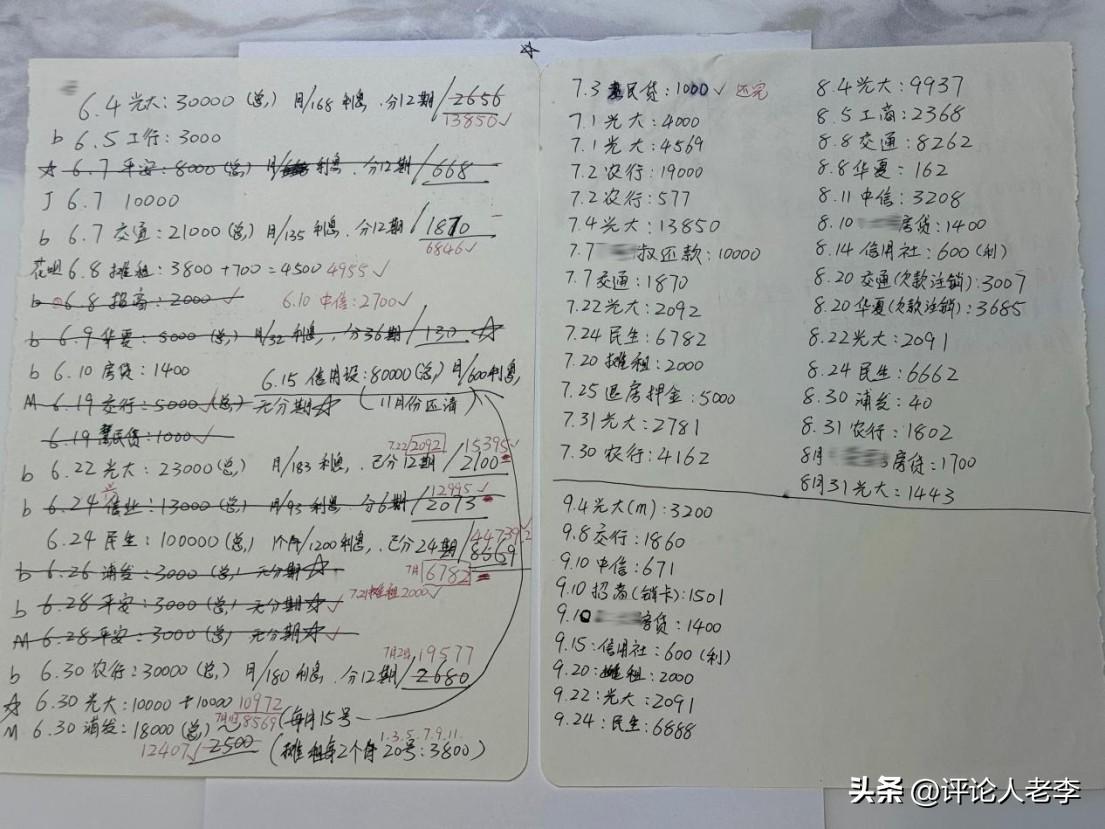 6.4 光大:30000(总) 月/168利息.分12期/2656
13850✓
b 6.5 工行:3000
☆ 6.7 平安:8000(总) 月/利息.分12期/668
J 6.7 10000
b 6.7 交通:21000(总) 月/135利息.分12期/1870
6846✓
花呗 6.8 摊租:3800+700=4500 4955✓
b 6.8 招商:2000✓ 6.10 中信:2700✓
b 6.9 华夏:5000(总) 月/32利息.分36期/130 ☆
b 6.10 房贷:1400
6.15 信用设:80000(总) 月/600利息,
M 6.19 交行:5000(总) 无分期☆ (11月份还清)
6.19 惠民贷:1000✓
7.22 2092 15395✓
b 6.22 光大:23000(总) 月/183利息.已分12期/2100
12995✓
b 6.24 兴业:13000(总) 月/93利息.分6期/2073
44739.2
6.24 民生:100000(总) 1个月/1200利息,.已分24期/8669
7月 6782
b 6.26 浦发:3000(总) 无分期☆
7.21摊租2000✓
b 6.28 平安:3000(总) 无分期☆✓
M 6.28 平安:3000(总) 无分期☆✓
7月2号 19577
b 6.30 农行:30000(总) 月/180利息.分12期/2680
☆ 6.30 光大:10000+10000 10972
M 6.30 浦发:18000(总) 8569 (每月15号
12407✓ 2500
1.3.5.7.9.11.
(摊租每2个月20号:3800)
7.3 惠民贷:1000✓ 还完
7.1 光大:4000
7.1 光大:4569
7.2 农行:19000
7.2 农行:577
7.4 光大:13850
7.7 叔还款:10000
7.7 交通:1870
7.22 光大:2092
7.24 民生:6782
7.20 摊租:2000
7.25 退房押金:5000
7.31 光大:2781
7.30 农行:4162
8.4 光大:9937
8.5 工商:2368
8.8 交通:8262
8.8 华夏:162
8.11 中信:3208
8.10 房贷:1400
8.14 信用社:600(利)
8.20 交通(欠款注销):3007
8.20 华夏(欠款注销):3685
8.22 光大:2091
8.24 民生:6662
8.30 浦发:40
8.31 农行:1802
8月 房贷:1700
8月31光大:1443
9.4 光大(m):3200
9.8 交行:1860
9.10 中信:671
9.10 招商(销卡):1501
9.10 房贷:1400
9.15:信用社:600(利)
9.20:摊租:2000
9.22:光大:2091
9.24:民生:6888
头条 @评论人老李